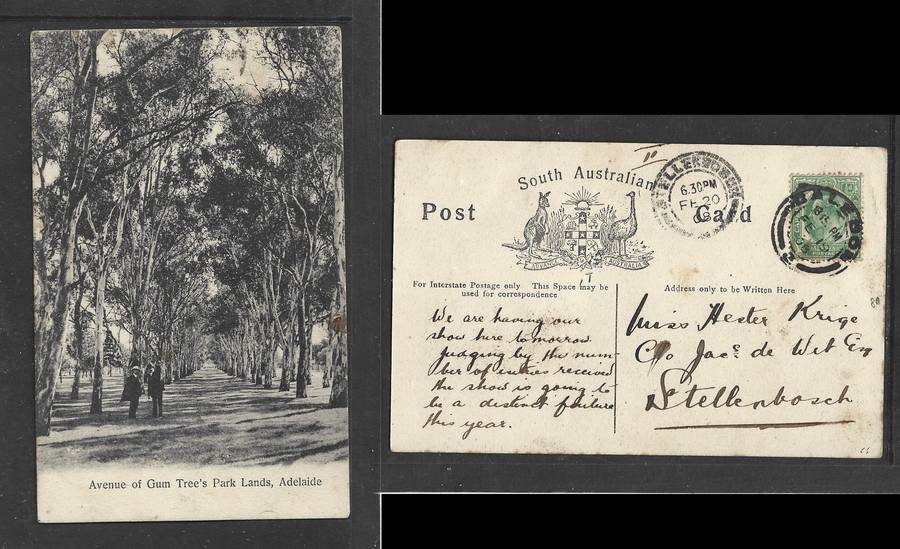 Avenue of Gum Tree's Park Lands, Adelaide
South Australian
Post Card
ADVANCE AUSTRALIA
6.30PM
FE 20
For Interstate Postage only This Space may be
used for correspondence
Address only to be Written Here
We are having our
show here to morrow
Judging by the num-
ber of entries received
the show is going to
be a distinct failure
this year.
Miss Hester Krige
C/o Jac.s de Wet Esq
Stellenbosch